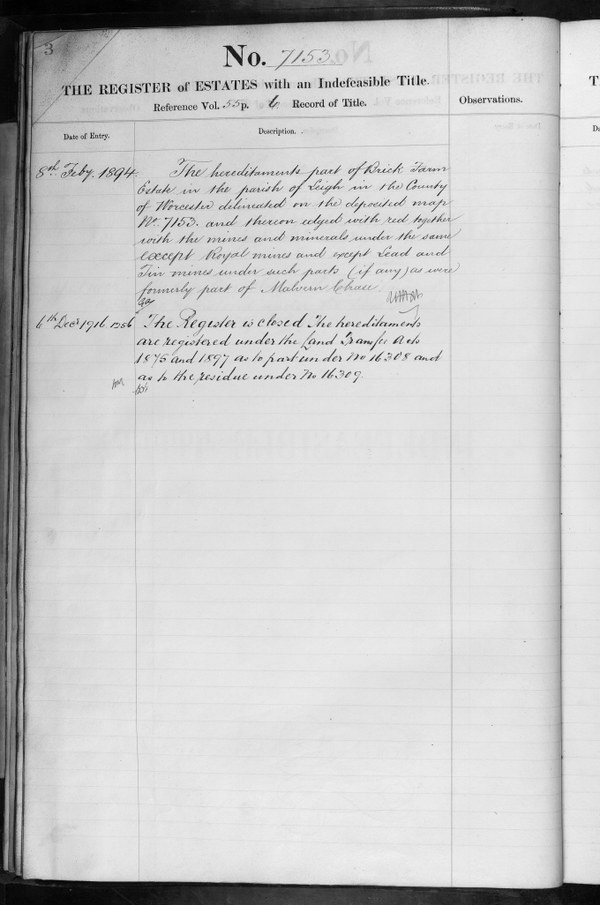 3
No. 7153
THE REGISTER of ESTATES with an Indefeasible Title.
Reference Vol. 55 p. 6 Record of Title.
Observations.
Date of Entry.
Description.
8th Feby. 1894.
The hereditaments part of Brick Farm
Estate in the parish of Leigh in the County
of Worcester delineated on the deposited map
No. 7153. and thereon edged with red together
with the mines and minerals under the same
except Royal mines and except Lead and
Tin mines under such parts (if any) as were
formerly part of Malvern Chase.
6th Decr 1916
The Register is closed The hereditaments
are registered under the Land Transfer Acts
1875 and 1897 as to part under No 16308 and
as to the residue under No 16309.